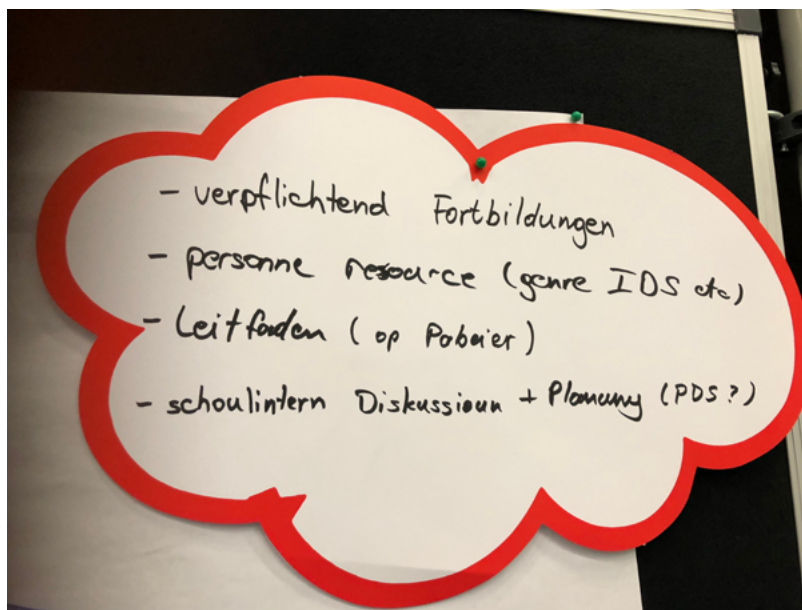 - verpflichtend Fortbildungen
- personne resource (genre IDS etc)
- Leitfaden (op Pabeier)
- schoulintern Diskussioun + Planung (PDS?)